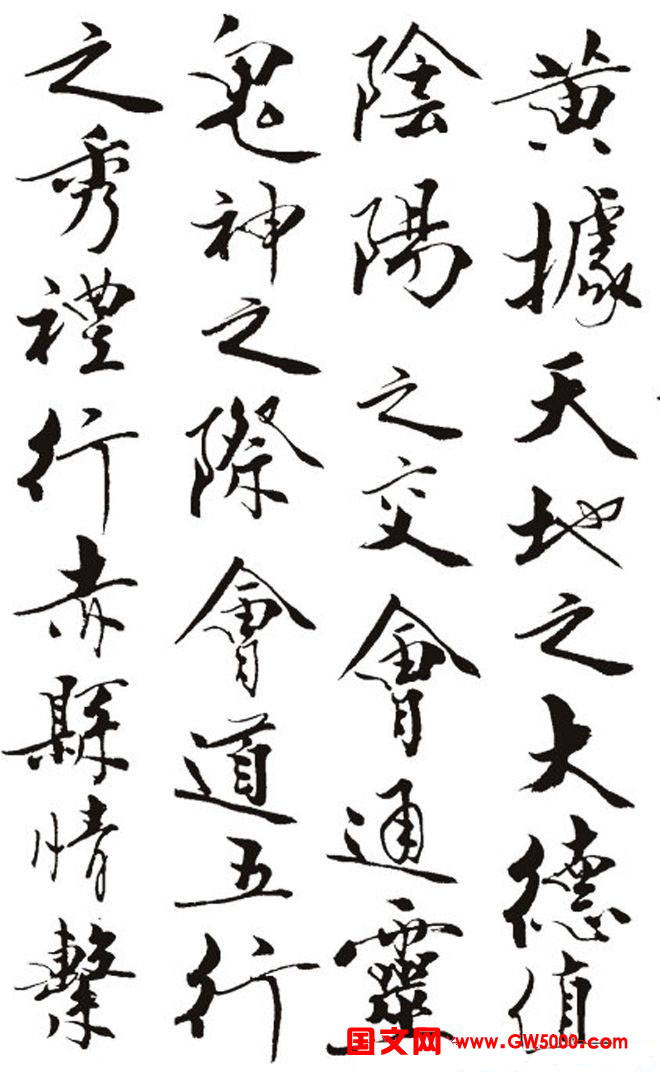 黄據天地之大德值
陰陽之交會通靈
鬼神之際會道五行
之秀禮行赤縣情繫
国文网 www.GW5000.com